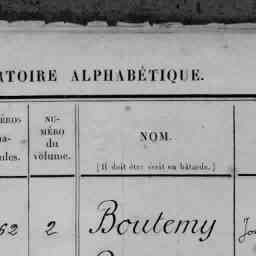 ATOIRE ALPHABÉTIQUE.
NU-
MÉRO
du
volume.
NOM.
(Il doit être écrit en bâtarde.)
62 2 Boutemy